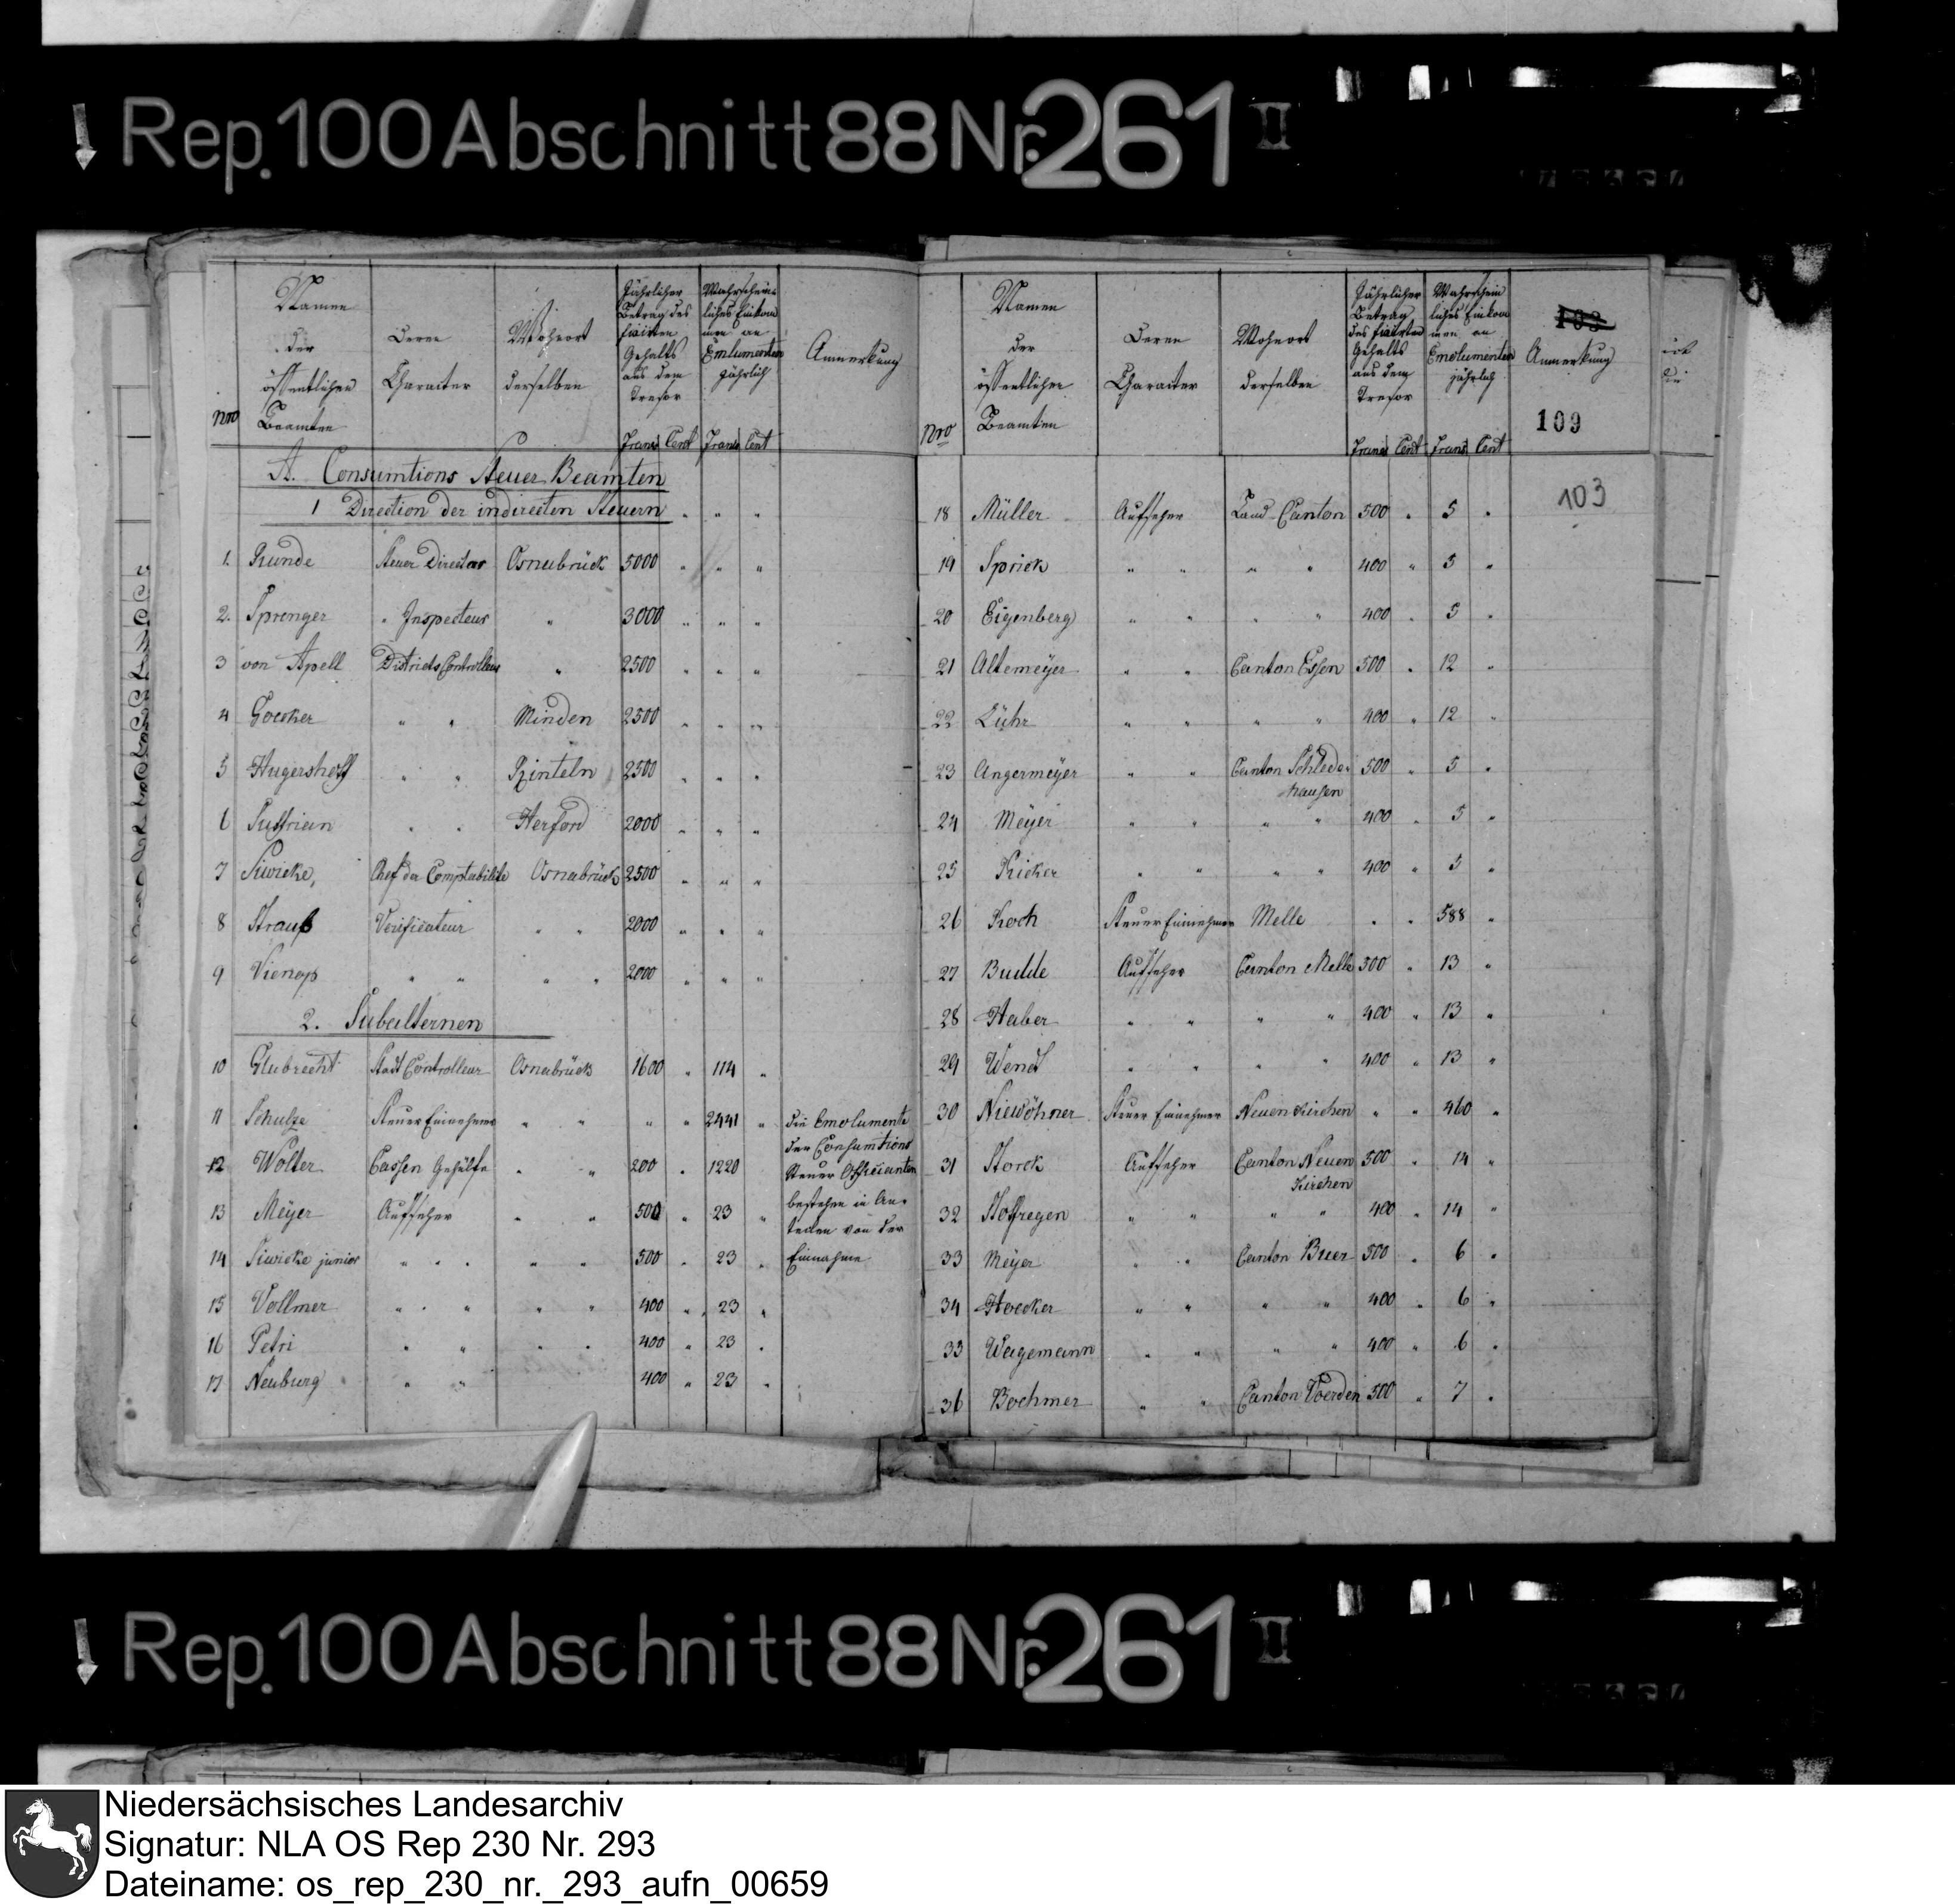 Rep. 100 Abschnitt 88 Nr. 261 II
Nro
Namen
der
öffentlichen
Beamten
Deren
Character
Wohnort
derselben
Jährlicher
Betrag des
fixirten
Gehalts
aus dem
Tresor
Francs Cent
Wahrschein-
liches Einkom
men an
Emlumenten
jährlich
Francs Cent
Anmerkung
A. Consumtions Steuer Beamten
1 Direction der indirecten Steuern " " "
1. Runde Steuer Director Osnabrück 5000 " " "
2. Sprenger " Inspecteur " 3000 " " "
3 von Apell Districts Controlleur " 2500 " " "
4 Goecker " " Minden 2500 " " "
5 Hugershoff " " Rinteln 2500 " " "
6 Suffrian " " Herford 2000 " " "
7 Siwicke, Chef der Comptabilite Osnabrück 2500 " " "
8 Strauß Verificateur " " 2000 " " "
9 Vienop " " " " 2000 " " "
2. Subalternen
10 Glubrecht Stadt Controlleur Osnabrück 1600 " 114 "
11 Schulze Steuer Einnehmer " " " " 2441 "
12 Wolter Cassen Gehülfe " " 200 " 1220
13 Meyer Aufseher " " 500 " 23 "
14 Siwicke junior " " " " " 500 " 23 "
15 Vollmer " " " " " 400 " 23 "
16 Petri " " " " 400 " 23 "
17 Neuburg " " 400 " 23 "
die Emolumente
der Consumtions
Steuer Officianten
bestehen in An-
teilen von der
Einnahme
Nro
Namen
der
öffentlichen
Beamten
Deren
Character
Wohnort
derselben
Jährlicher
Betrag
des fixirten
Gehalts
aus dem
Tresor
Francs Cent
Wahrschein
liches Einkom
men an
Emolumenten
jährlich
Francs Cent
103
Anmerkung
109
103
18 Müller Aufseher Land Canton 500 " 5 "
19 Sprick " " " " 400 " 5 "
20 Eigenberg " " " " 400 " 5 "
21 Altemeyer " " Canton Essen 500 " 12 "
22 Lühr " " " " 400 " 12 "
23 Angermeyer " " Canton Schlede- 500 " 5 "
hausen
24 Meyer " " " " 400 " 5 "
25 Kicker " " " " 400 " 5 "
26 Koch Steuer Einnehmer Melle " " 588 "
27 Budde Aufseher Canton Melle 500 " 13 "
28 Haber " " " " 400 " 13 "
29 Wendt " " " " 400 " 13 "
30 Niewöhner Steuer Einnehmer Neuenkirchen " " 460 "
31 Storck Aufseher Canton Neuen 500 " 14 "
Kirchen
32 Hoffregen " " " " 400 " 14 "
33 Meyer " " Canton Buer 500 " 6 "
34 Hoecker " " " " 400 " 6 "
35 Wagemann " " " " 400 " 6 "
36 Bochmer " " Canton Voerden 500 " 7 "
Rep. 100 Abschnitt 88 Nr. 261 II
Niedersächsisches Landesarchiv
Signatur: NLA OS Rep 230 Nr. 293
Dateiname: os_rep_230_nr._293_aufn_00659